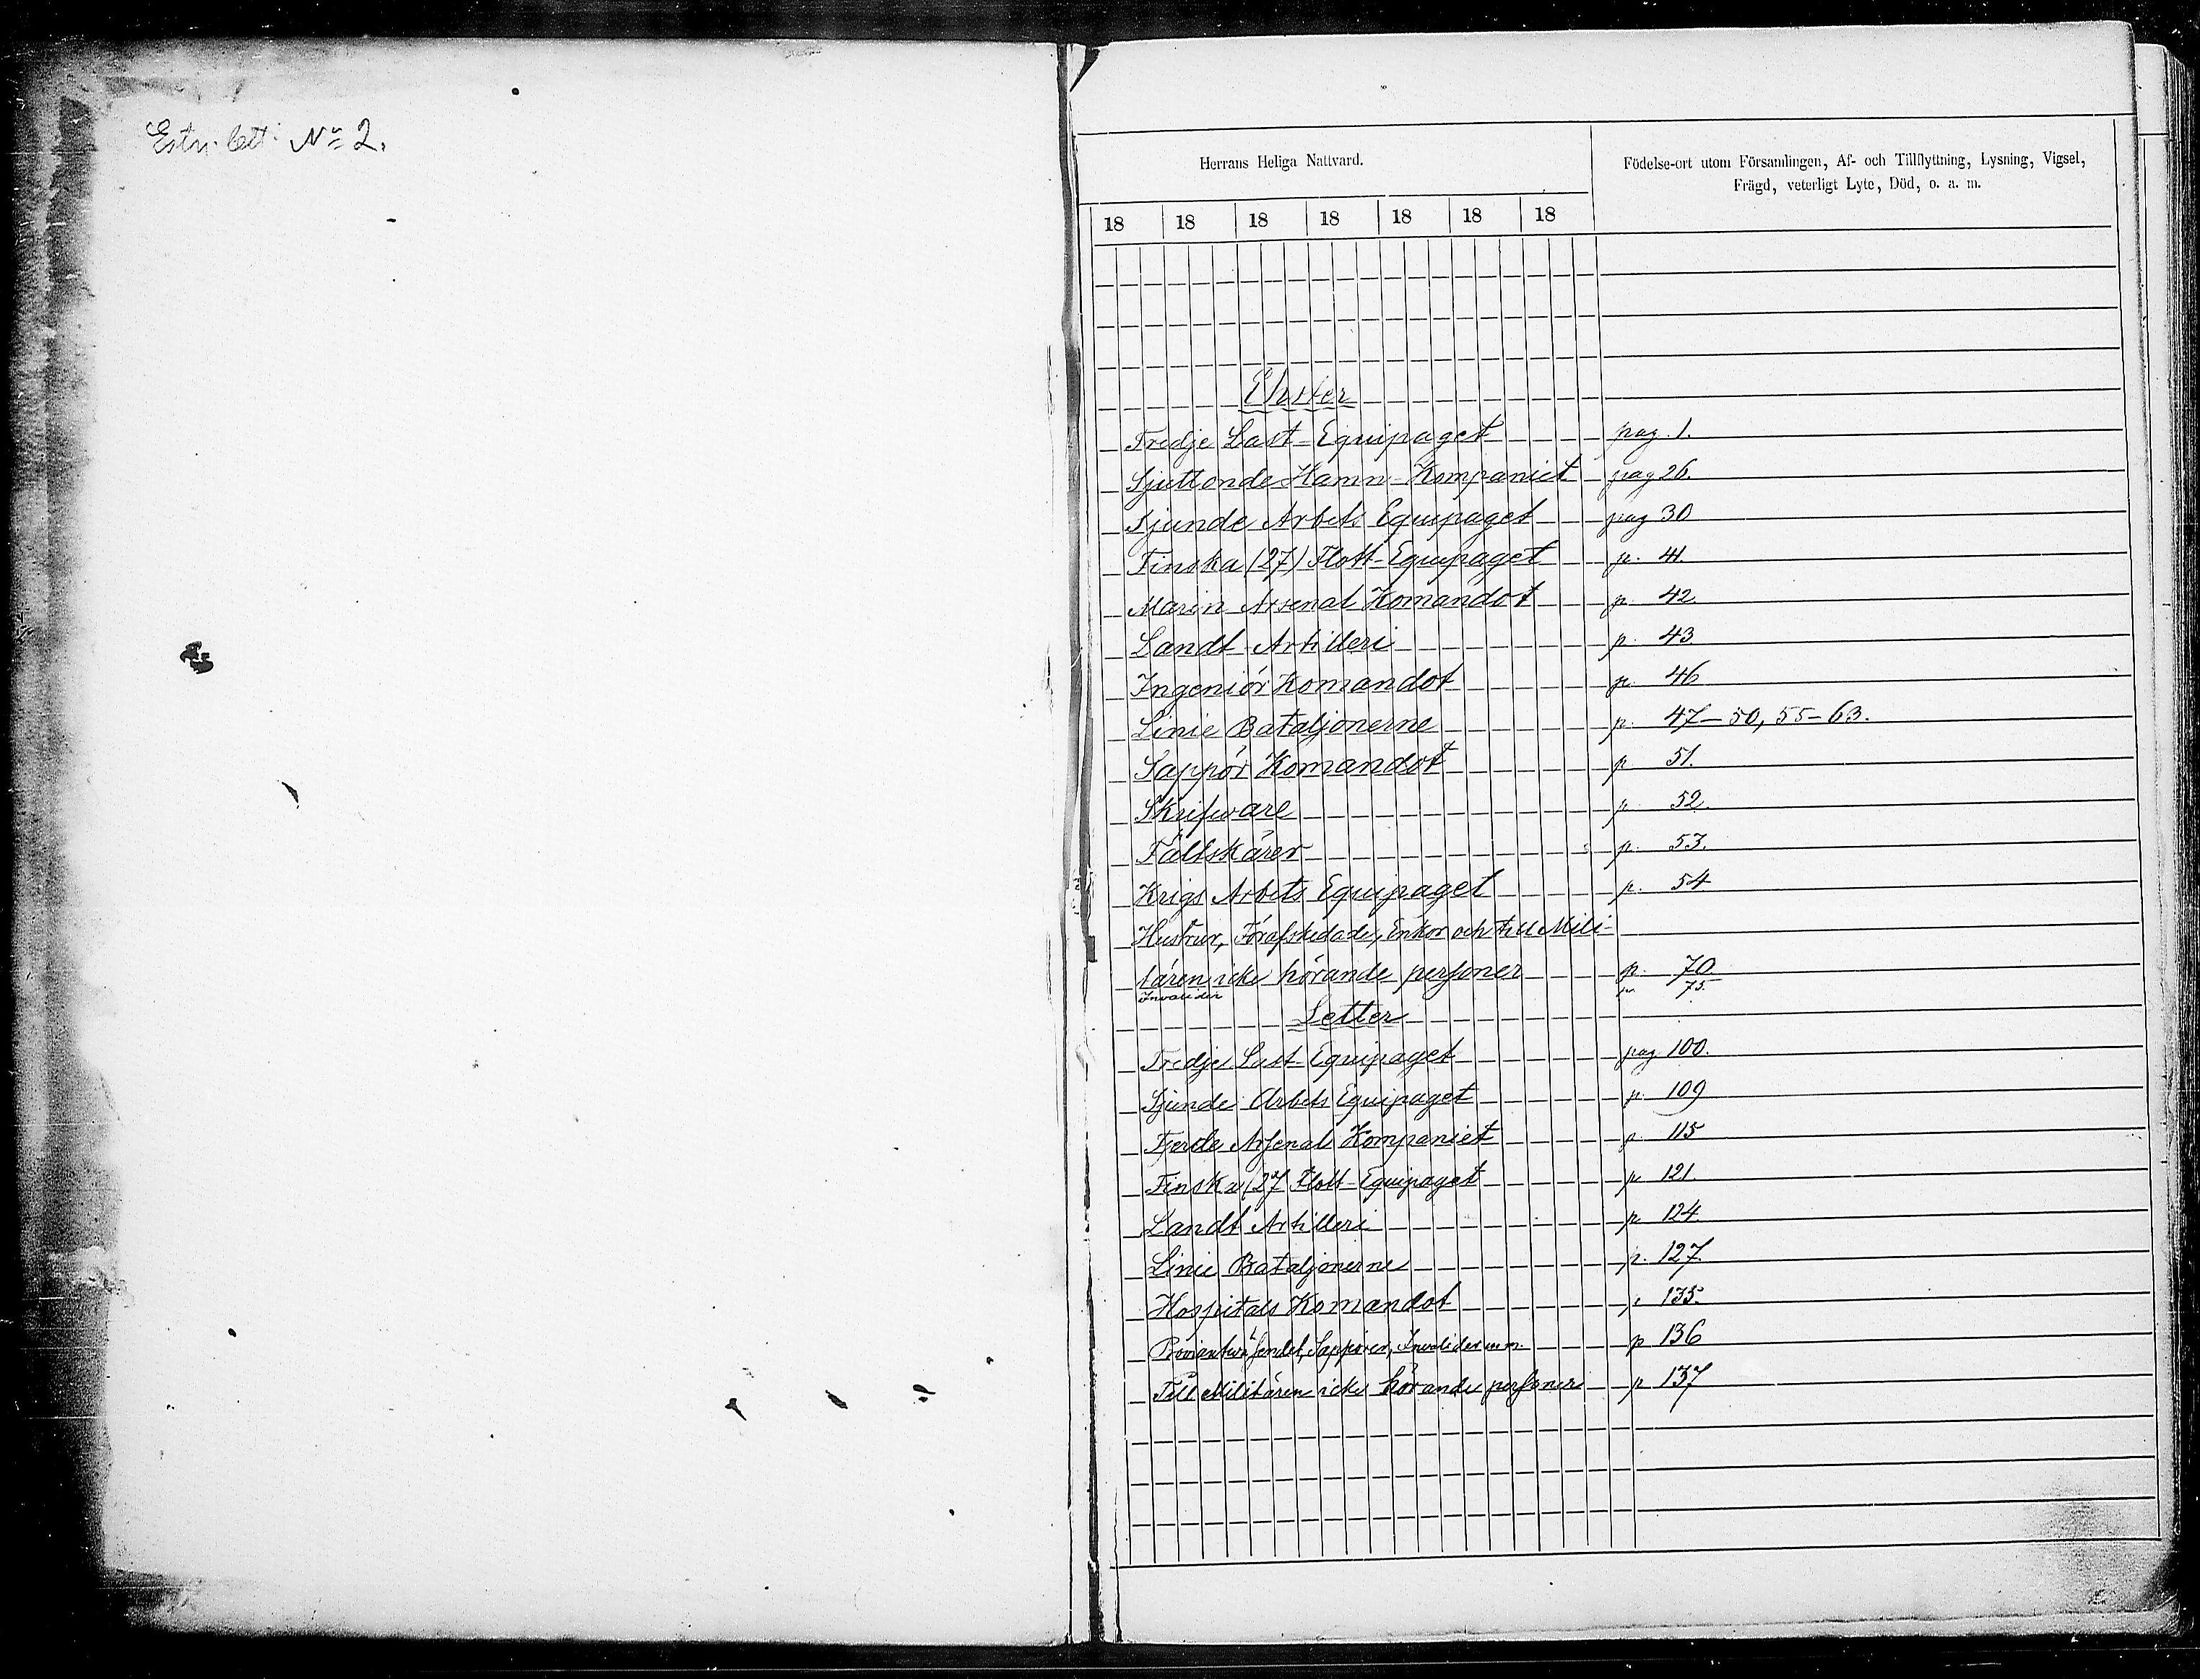 Estn. lett. No 2.
Herrans Heliga Nattvard.
Födelse-ort utom Församlingen, Af- och Tillflyttning, Lysning, Vigsel,
Frägd, veterligt Lyte, Död, o. a. m.
18 18 18 18 18 18 18
Ehster
Tredje Last-Equipaget pag. 1.
Sjuttonde Hamn-Kompaniet pag 26.
Sjunde Arbets Equipaget pag 30
Finska (27) Flott-Equipaget p. 41.
Marin Arsenal Komandot p. 42
Landt Artilleri p. 43
Ingeniör Komandot p. 46
Linie Bataljonerne p. 47-50, 55-63.
Sappör Komandot p 51.
Skrifware p. 52.
Fältskärer p. 53.
Krigs Arbets Equipaget p. 54
Hustrur, Förafskedade, Enkor och till Mili-
tären icke hörande personer p. 70
Invalider p. 75.
Letter
Tredje Last-Equipaget pag 100.
Sjunde Arbets Equipaget p. 109
Fjerde Arsenals Kompaniet p 115
Finska (27 Flott-Equipaget p 121.
Landt Artilleri p 124.
Linie Bataljonerne p. 127.
Hospitals Komandot p 135.
Proviantväsendet, Sappörer, Invalider m.m. p 136
Till Militären icke hörande personer p 137